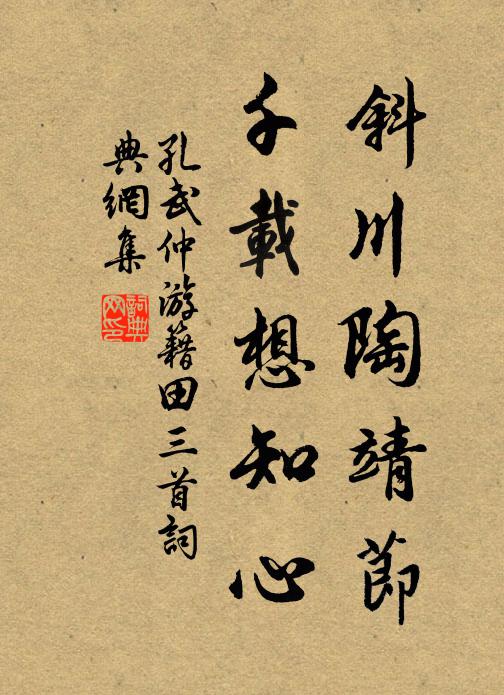 斜川陶靖節
千載想知心
孔武仲游籍田三首詞
典網集
詞典
网印